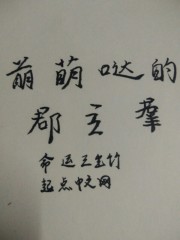 萌萌哒的
郡主羣
命运三生竹
起点中文网